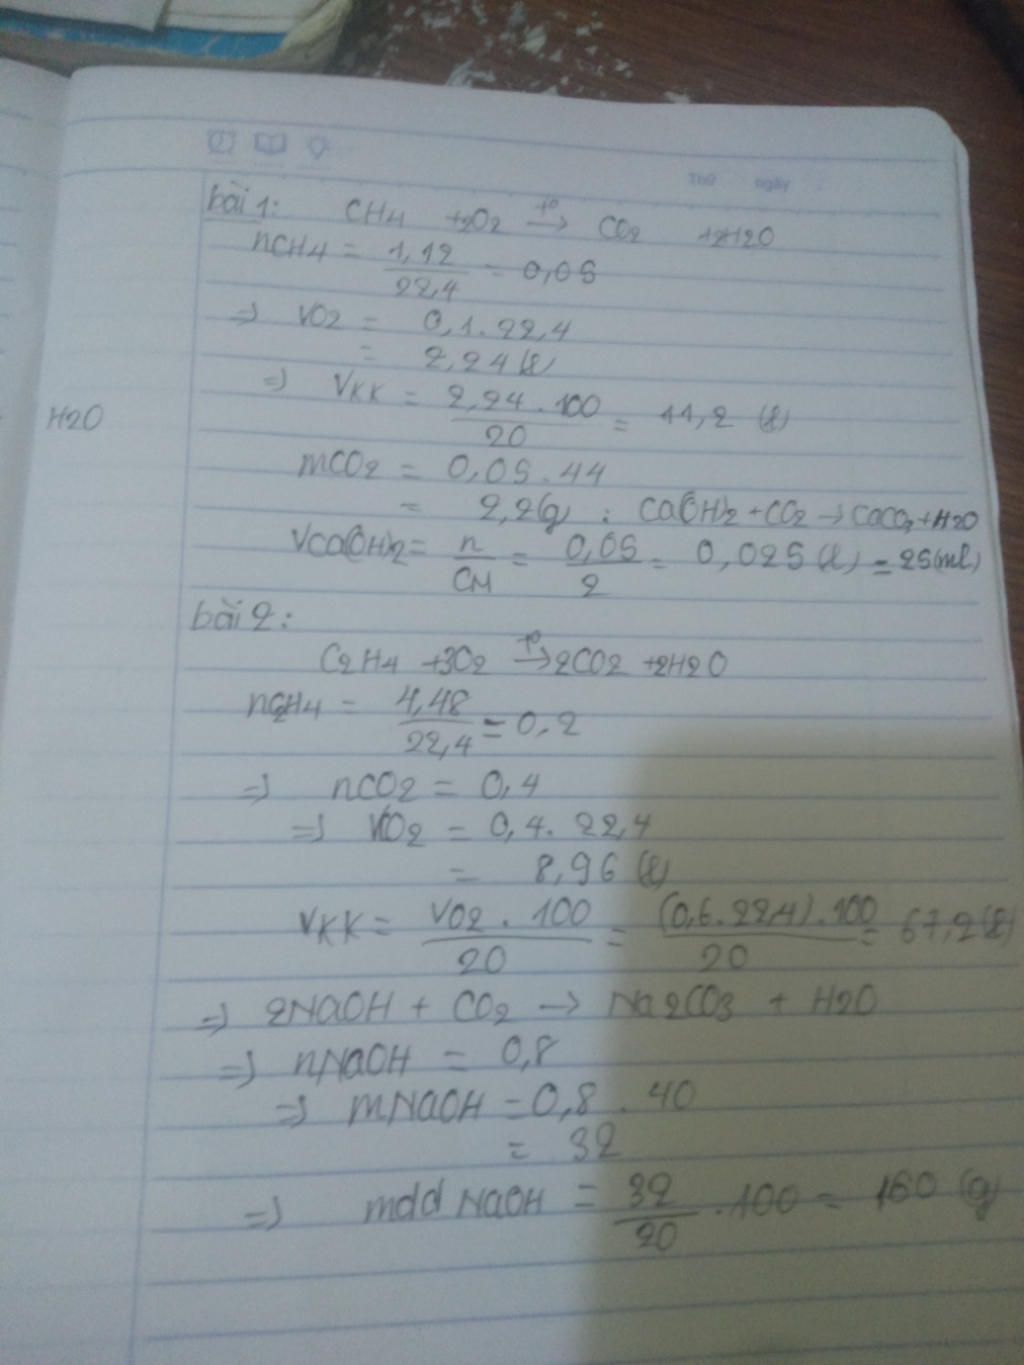 Thứ ngày
bài 1: CH4 +2O2 t° → CO2 +2H2O
nCH4 = 1,12 / 22,4 = 0,05
=> VO2 = 0,1.22,4
= 2,24(l)
=> VKK = 2,24.100 / 20 = 11,2 (l)
H2O
mCO2 = 0,05.44
= 2,2(g) : Ca(OH)2 + CO2 → CaCO3 + H2O
VCa(OH)2 = n / CM = 0,05 / 2 = 0,025 (l) = 25(ml)
bài 2:
C2H4 +3O2 t° → 2CO2 +2H2O
nC2H4 = 4,48 / 22,4 = 0,2
=> nCO2 = 0,4
=> VCO2 = 0,4.22,4
= 8,96 (l)
VKK = VO2.100 / 20 = (0,6.22,4).100 / 20 = 67,2(l)
=> 2NaOH + CO2 → Na2CO3 + H2O
=> nNaOH = 0,8
=> mNaOH = 0,8.40
= 32
=> mdd NaOH = 32 / 20 .100 = 160 (g)